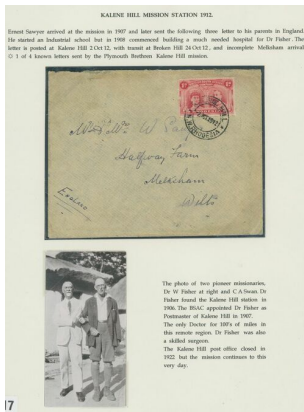 KALENE HILL MISSION STATION 1912.
Ernest Sawyer arrived at the mission in 1907 and later sent the following three letter to his parents in England.
He started an Industrial school but in 1908 commenced building a much needed hospital for Dr Fisher. The
letter is posted at Kalene Hill 2 Oct 12, with transit at Broken Hill 24 Oct 12, and incomplete Melksham arrival
1 of 4 known letters sent by the Plymouth Brethren Kalene Hill mission.
W
Halfway Farm
Melksham
Wilts
The photo of two pioneer missionaries,
Dr W Fisher at right and C A Swan. Dr
Fisher found the Kalene Hill station in
1906. The BSAC appointed Dr Fisher as
Postmaster of Kalene Hill in 1907.
The only Doctor for 100's of miles in
this remote region. Dr Fisher was also
a skilled surgeon.
The Kalene Hill post office closed in
1922 but the mission continues to this
very day.
17